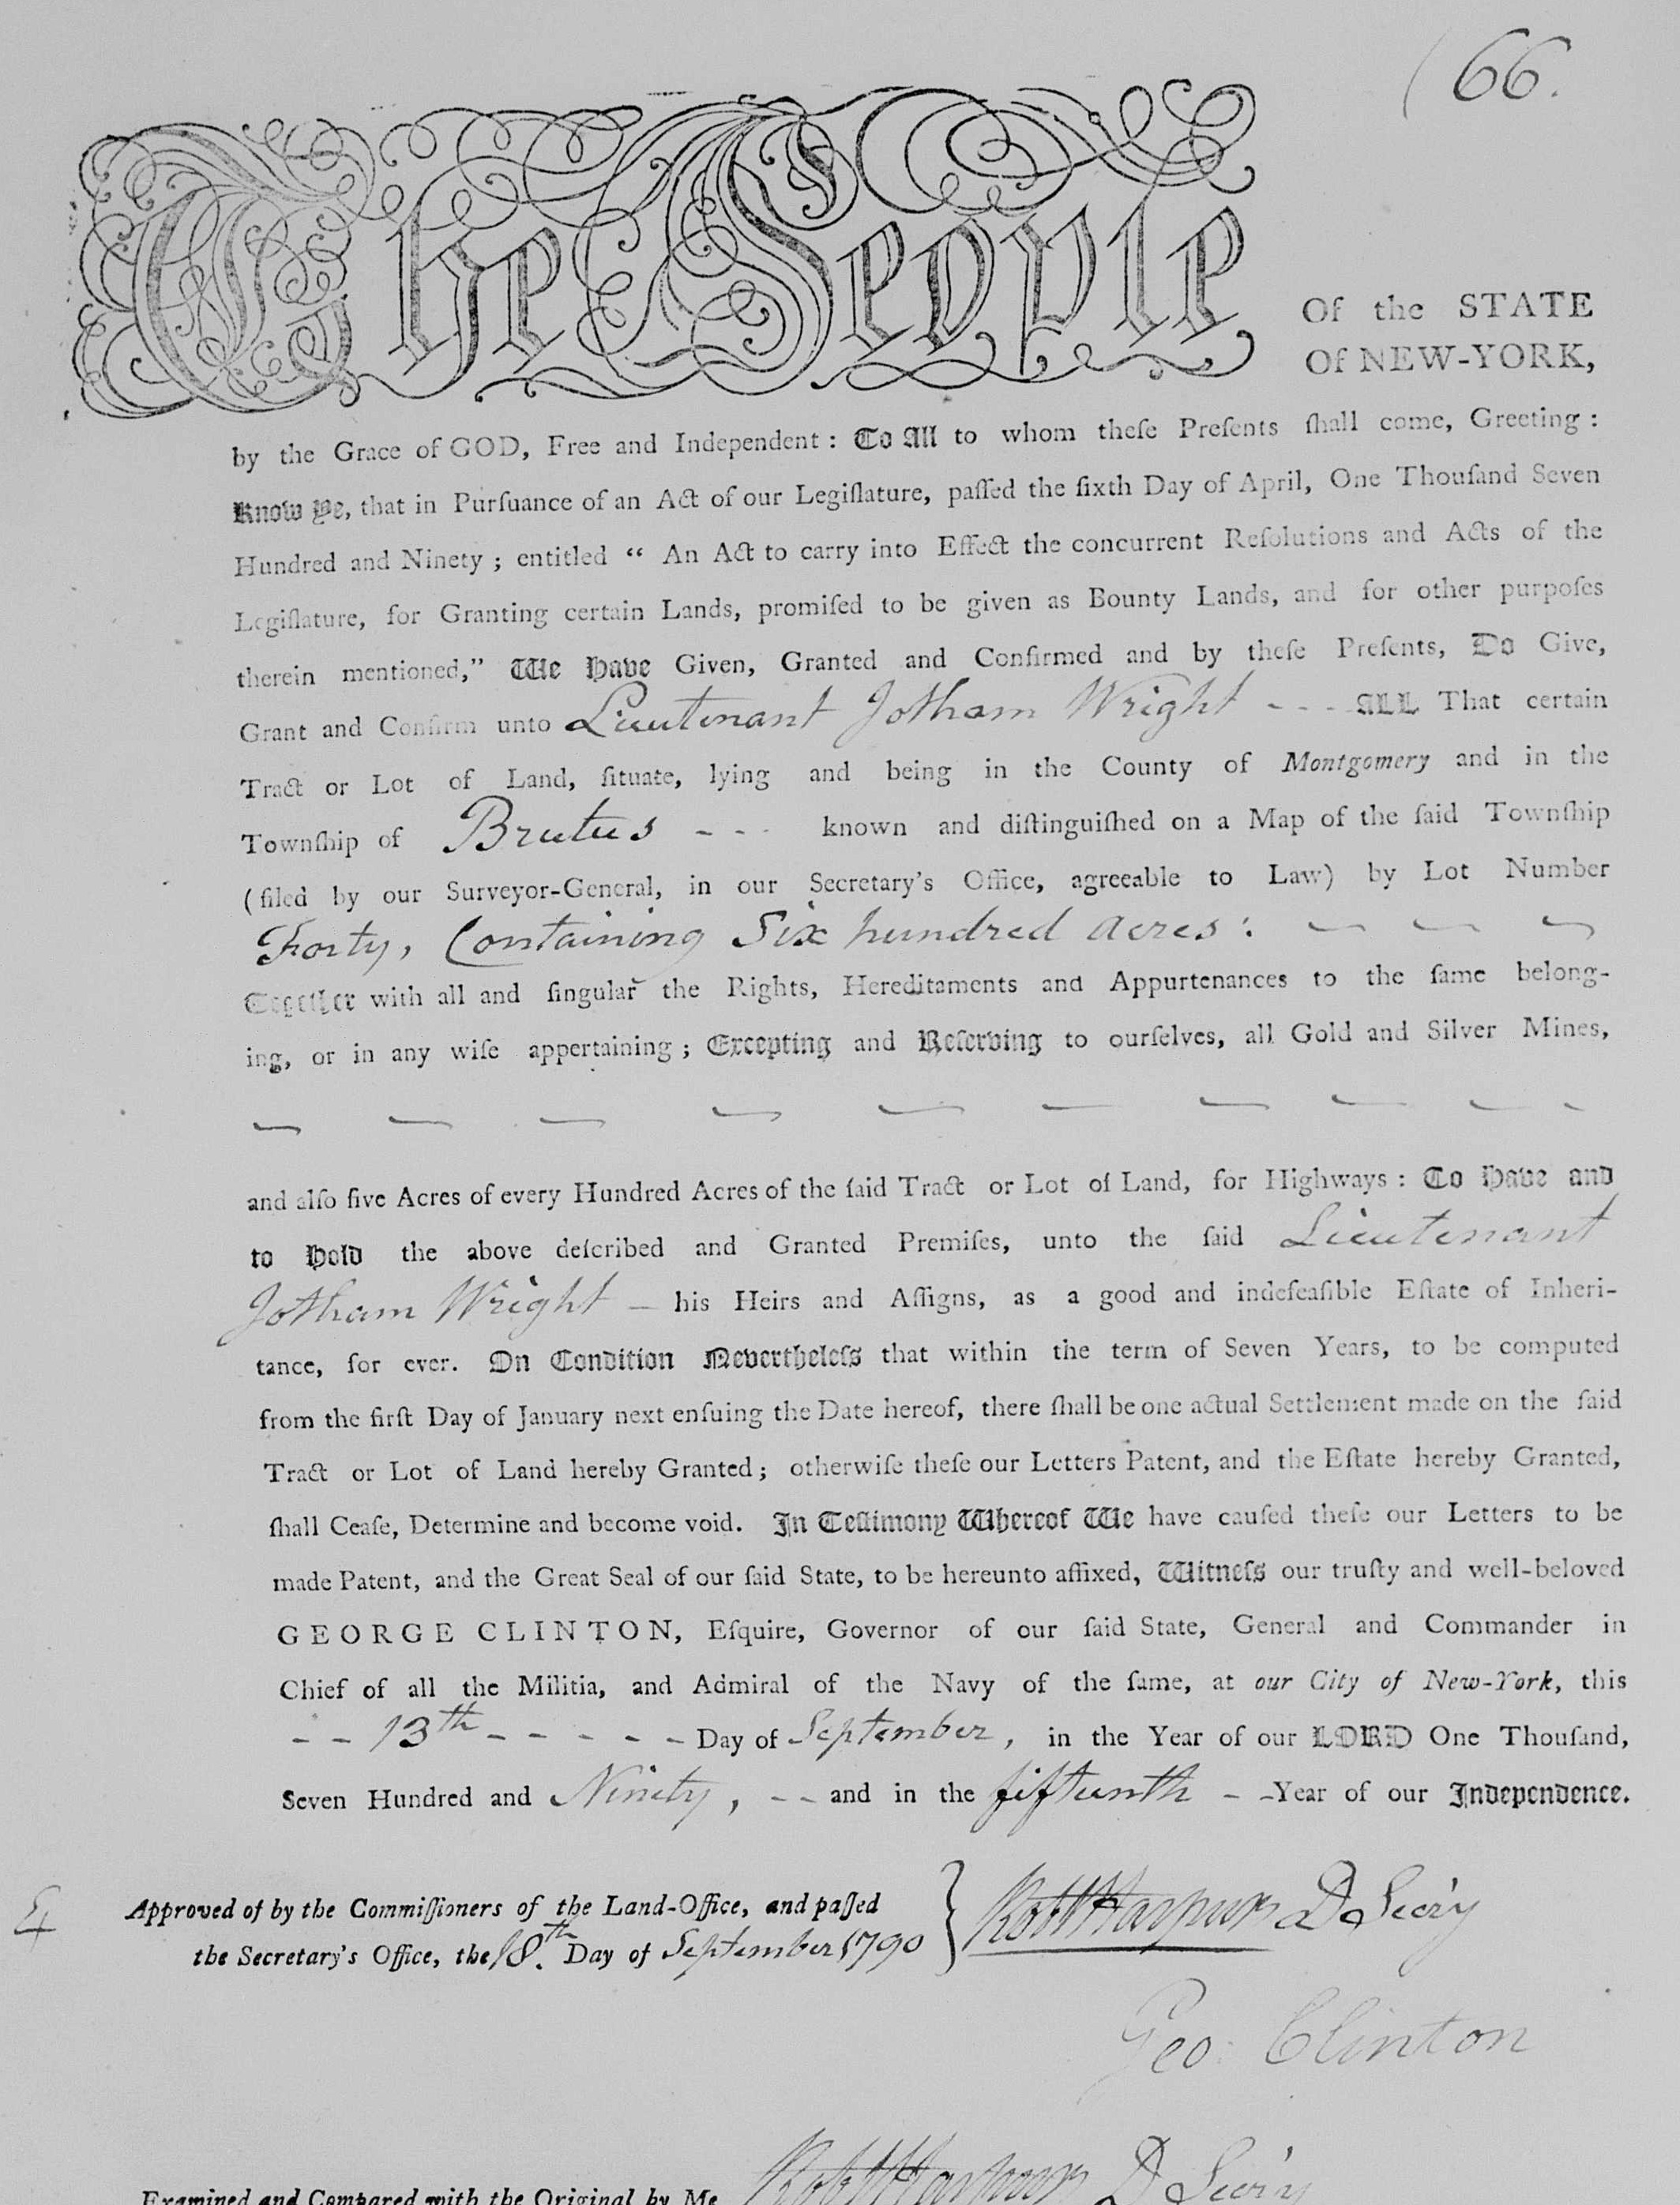 (66.
The People
Of the STATE
Of NEW-YORK,
by the Grace of GOD, Free and Independent: To All to whom theſe Preſents ſhall come, Greeting:
Know Ye, that in Purſuance of an Act of our Legiſlature, paſſed the ſixth Day of April, One Thouſand Seven
Hundred and Ninety; entitled “ An Act to carry into Effect the concurrent Reſolutions and Acts of the
Legiſlature, for Granting certain Lands, promiſed to be given as Bounty Lands, and for other purpoſes
therein mentioned,” We Have Given, Granted and Confirmed and by theſe Preſents, Do Give,
Grant and Confirm unto Lieutenant Jotham Wright - - - ALL That certain
Tract or Lot of Land, ſituate, lying and being in the County of Montgomery and in the
Townſhip of Brutus - - - known and diſtinguiſhed on a Map of the ſaid Townſhip
(filed by our Surveyor-General, in our Secretary's Office, agreeable to Law) by Lot Number
Forty, Containing Six hundred acres: ~ ~ ~
Together with all and ſingular the Rights, Hereditaments and Appurtenances to the ſame belong-
ing, or in any wiſe appertaining; Excepting and Reſerving to ourſelves, all Gold and Silver Mines,
and alſo five Acres of every Hundred Acres of the ſaid Tract or Lot of Land, for Highways: To Have and
to Hold the above deſcribed and Granted Premiſes, unto the ſaid Lieutenant
Jotham Wright – his Heirs and Aſſigns, as a good and indefeaſible Eſtate of Inheri-
tance, for ever. On Condition Nevertheleſs that within the term of Seven Years, to be computed
from the firſt Day of January next enſuing the Date hereof, there ſhall be one actual Settlement made on the ſaid
Tract or Lot of Land hereby Granted; otherwiſe theſe our Letters Patent, and the Eſtate hereby Granted,
ſhall Ceaſe, Determine and become void. In Teſtimony Whereof We have cauſed theſe our Letters to be
made Patent, and the Great Seal of our ſaid State, to be hereunto affixed, Witneſs our truſty and well-beloved
GEORGE CLINTON, Eſquire, Governor of our ſaid State, General and Commander in
Chief of all the Militia, and Admiral of the Navy of the ſame, at our City of New-York, this
- - 13th - - - - - Day of September, in the Year of our LORD One Thouſand,
Seven Hundred and Ninety, - - and in the fifteenth - - Year of our Independence.
Approved of by the Commiſſioners of the Land-Office, and paſſed
the Secretary's Office, the 18.th Day of September 1790
Robt Harpur D Secry
Geo: Clinton
Examined and Compared with the Original by Me Robt Harpur D Secry